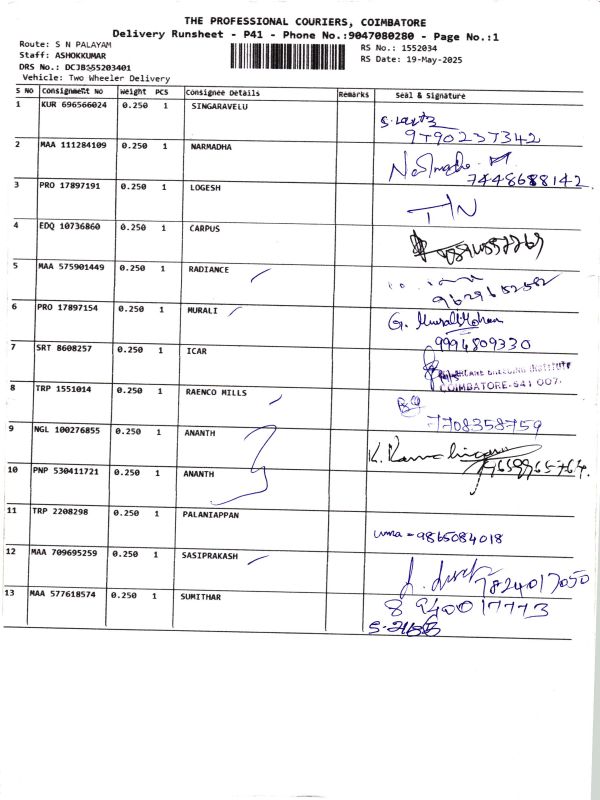 THE PROFESSIONAL COURIERS, COIMBATORE
Delivery Runsheet - P41 - Phone No.:9047080280 - Page No.:1
Route: S N PALAYAM
Staff: ASHOKKUMAR
DRS No.: DCJB555203401
Vehicle: Two Wheeler Delivery
RS No.: 1552034
RS Date: 19-May-2025
S NO Consignment No Weight PCS Consignee Details Remarks Seal & Signature
1 KUR 696566024 0.250 1 SINGARAVELU
9790237342
2 MAA 111284109 0.250 1 NARMADHA
7448688142
3 PRO 17897191 0.250 1 LOGESH
4 EDQ 10736860 0.250 1 CARPUS
5 MAA 575901449 0.250 1 RADIANCE
9629652582
6 PRO 17897154 0.250 1 MURALI
G. Murali Mohan
9994809330
7 SRT 8608257 0.250 1 ICAR
BREEDING Institute
COIMBATORE-641 007.
8 TRP 1551014 0.250 1 RAENCO MILLS
7708358759
9 NGL 100276855 0.250 1 ANANTH
10 PNP 530411721 0.250 1 ANANTH
11 TRP 2208298 0.250 1 PALANIAPPAN
uma - 9865084018
12 MAA 709695259 0.250 1 SASIPRAKASH
7824017050
13 MAA 577618574 0.250 1 SUMITHAR
8940017773